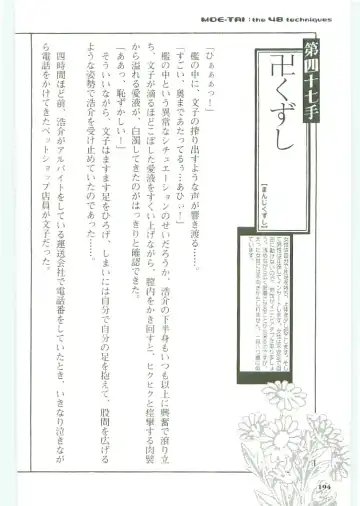 MOE-TAI : the 48 techniques
第四十七手
卍くずし
【まんじくずし】
「ひぁぁぁっ！」
檻の中に、文子の搾り出すような声が響き渡る……。
「すごい、奥まであたってるぅ……あひぃ！」
檻の中という異常なシチュエーションのせいだろうか、浩介の下半身もいつも以上に興奮で滾り立
ち、文子が滴るほどこぼした愛液をすくい上げながら、膣内をかき回すと、ヒクヒクと痙攣する肉襞
から溢れる愛液が、白濁してきたのがはっきりと確認できた。
「ああっ、恥ずかしい！」
そういいながら、文子はますます足をひろげ、しまいには自分で自分の足を抱えて、股間を広げる
ような姿勢で浩介を受け止めていたのであった……。
四時間ほど前、浩介がアルバイトをしている運送会社で電話番をしていたとき、いきなり泣きなが
ら電話をかけてきたペットショップ店員が文子だった。
194